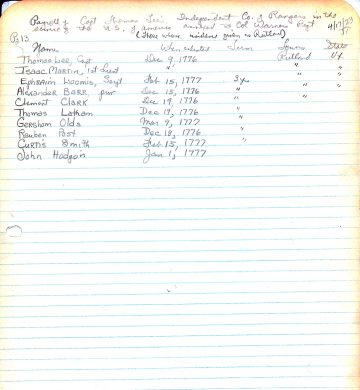 Payroll of Capt Thomas Lee's Independent Co. of Rangers in the
service of the U.S. of America annexed to Col Warner's Regt
Pg 13 (Those whose residence given is Rutland)
Name When enlisted Term Town State
Thomas Lee, Capt Dec 9, 1776 Rutland Vt.
Isaac Martin, 1st Lieut " " "
Ephraim Loomis, Sergt Feb 15, 1777 3 yrs " "
Alexander Barr Dec 15, 1776 " " "
Clement Clark Dec 19, 1776 "
Thomas Latham Dec 19, 1776 "
Gershom Olds Mar 9, 1777 "
Reuben Post Dec 18, 1776 "
Curtis Smith Feb 15, 1777 "
John Hodgan Jan 1, 1777